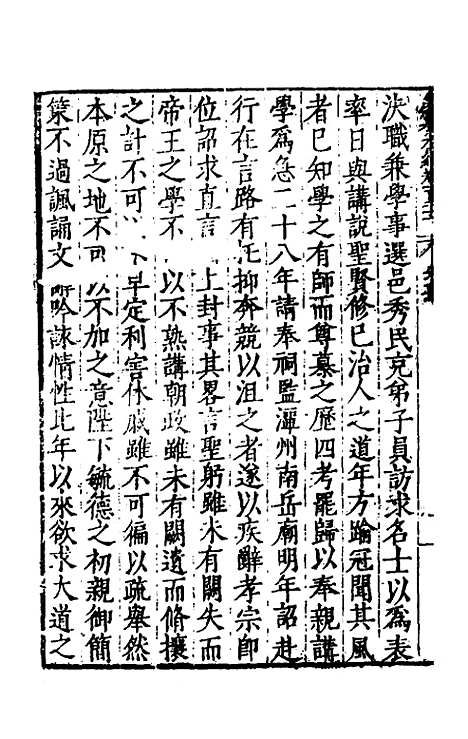 決職兼學事選邑秀民充弟子員訪求名士以為表
率日與講說聖賢修已治人之道年方踰冠聞其風
者已知學之有師而尊慕之歷四考罷歸以奉親講
學為急二十八年請奉祠監潭州南岳廟明年詔赴
行在言路有托抑奔競以沮之者遂以疾辭孝宗即
位詔求直言上封事其畧言聖躬雖未有闕失而
帝王之學不 以不熟講朝政雖未有闕遺而脩攘
之計不可 早定利害休戚雖不可徧以疏舉然
本原之地不可以不加之意陛下毓德之初親御簡
策不過諷誦文 吟詠情性比年以來欲求大道之